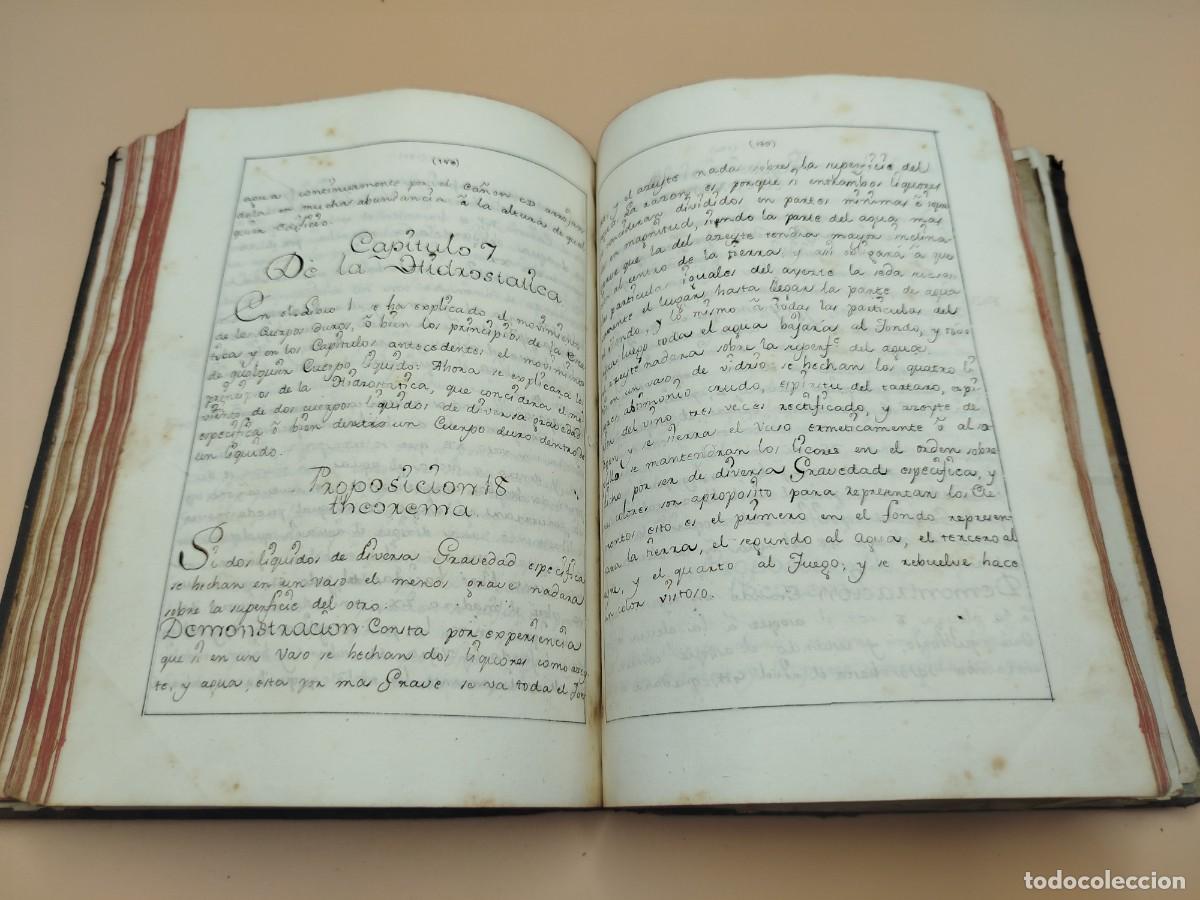 agua continuamente por el cañon CD arrojan
dola en mucha abundancia â la altura de qual
quier edificio.
Capitulo 7
De la Hidrostatica
En el Libro 1 se ha explicado el movimiento
de los Cuerpos duros, ô bien los principios de la
tica y en los Capitulos antecedentes el movimiento
de qualquier Cuerpo liquido: Ahora se explicaran los
principios de la Hidrostatica, que considera el mo
vimiento de dos cuerpos liquidos de diversa gravedad
especifica ô bien dentro un Cuerpo duro dentro de
un liquido.
Proposicion 18
theorema.
Si dos liquidos de diversa Gravedad especifica
se hechan en un vaso el menos grave nadara
sobre la superficie del otro.
Demonstracion Consta por experiencia
que si en un vaso se hechan dos liquores como azey
te, y agua, esta por mas Grave se va toda el fon
y el azeyte nada sobre la superficie del
La razon es porque si entrambos liquores
consideran divididos en partes minimas ô
en magnitud, siendo la parte del agua mas
grave que la del azeyte tendra mayor inclina
al centro de la tierra, y asi obligará a que
particulas iguales del azeyte la
el lugar hasta llegar la parte de agua
fondo, y lo mismo â todas las particulas del
luego toda el agua bajara al fondo, y
azeyte nadara sobre la superfe. del agua.
en un vaso de vidrio se hechan los quatro li
antimonio crudo, espiritu del tartaro, espi
del vino tres veces rectificado, y azeyte de
y se sierra el vaso ermeticamente ô al
se mantendran los licores en el orden sobre
dicho por ser de diversa Gravedad especifica, y
colores son aproposito para representar los Ele
mentos esto es el primero en el fondo represen
tara la tierra, el segundo al agua, el tercero al
ayre, y el quarto al fuego; y se rebuelve hace
un color vistoso.
todocoleccion